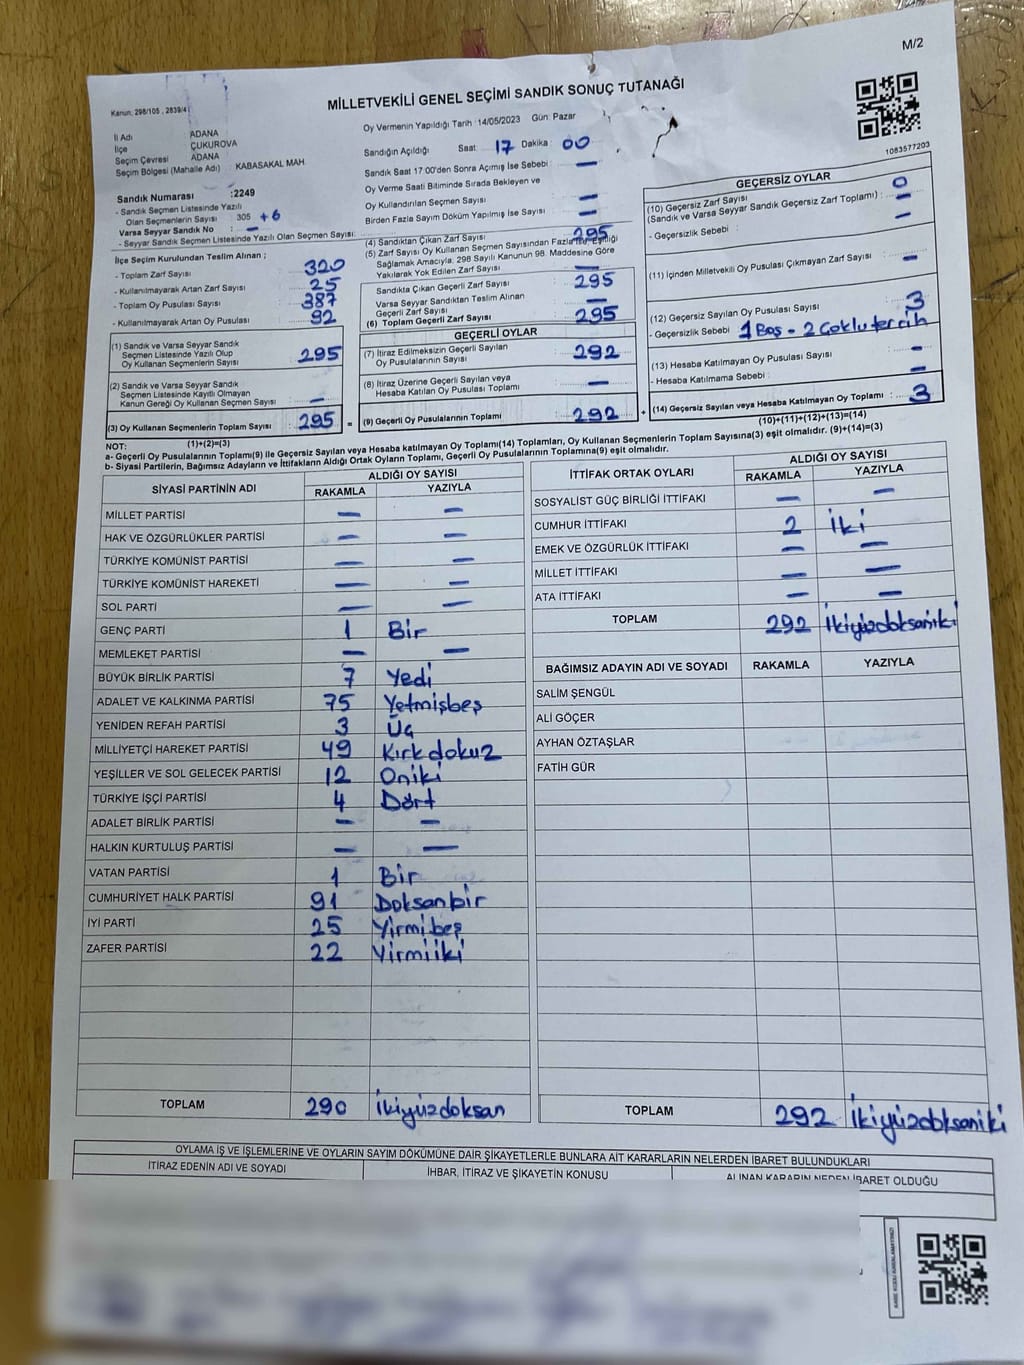 M/2
MİLLETVEKİLİ GENEL SEÇİMİ SANDIK SONUÇ TUTANAĞI
Kanun: 298/105 , 2839/4
İl Adı ADANA
İlçe ÇUKUROVA
Seçim Çevresi ADANA
Seçim Bölgesi (Mahalle Adı) KABASAKAL MAH.
Sandık Numarası :2249
- Sandık Seçmen Listesinde Yazılı
Olan Seçmenlerin Sayısı 305 +6
Varsa Seyyar Sandık No : —
- Seyyar Sandık Seçmen Listesinde Yazılı Olan Seçmen Sayısı:
İlçe Seçim Kurulundan Teslim Alınan ;
- Toplam Zarf Sayısı 320
- Kullanılmayarak Artan Zarf Sayısı 25
- Toplam Oy Pusulası Sayısı 387
- Kullanılmayarak Artan Oy Pusulası 92
(1) Sandık ve Varsa Seyyar Sandık
Seçmen Listesinde Yazılı Olup
Oy Kullanan Seçmenlerin Sayısı 295
(2) Sandık ve Varsa Seyyar Sandık
Seçmen Listesinde Kayıtlı Olmayan
Kanun Gereği Oy Kullanan Seçmen Sayısı —
(3) Oy Kullanan Seçmenlerin Toplam Sayısı : 295 =
(1)+(2)=(3)
Oy Vermenin Yapıldığı Tarih :14/05/2023 Gün: Pazar
Sandığın Açıldığı Saat 17 Dakika : 00
Sandık Saat 17:00'den Sonra Açımış İse Sebebi : —
Oy Verme Saati Bitiminde Sırada Bekleyen ve
Oy Kullandırılan Seçmen Sayısı —
Birden Fazla Sayım Döküm Yapılmış İse Sayısı —
(4) Sandıktan Çıkan Zarf Sayısı 295
(5) Zarf Sayısı Oy Kullanan Seçmen Sayısından Fazla ise, Eşitliği
Sağlamak Amacıyla, 298 Sayılı Kanunun 98. Maddesine Göre
Yakılarak Yok Edilen Zarf Sayısı —
Sandıkta Çıkan Geçerli Zarf Sayısı 295
Varsa Seyyar Sandıktan Teslim Alınan
Geçerli Zarf Sayısı —
(6) Toplam Geçerli Zarf Sayısı 295
GEÇERLİ OYLAR
(7) İtiraz Edilmeksizin Geçerli Sayılan
Oy Pusulalarının Sayısı 292
(8) İtiraz Üzerine Geçerli Sayılan veya
Hesaba Katılan Oy Pusulası Toplamı —
(9) Geçerli Oy Pusulalarının Toplamı 292 +
1083577203
GEÇERSİZ OYLAR
(10) Geçersiz Zarf Sayısı 0
(Sandık ve Varsa Seyyar Sandık Geçersiz Zarf Toplamı) : —
- Geçersizlik Sebebi : —
(11) İçinden Milletvekili Oy Pusulası Çıkmayan Zarf Sayısı —
(12) Geçersiz Sayılan Oy Pusulası Sayısı 3
- Geçersizlik Sebebi 1 Boş - 2 Çoklu tercih
(13) Hesaba Katılmayan Oy Pusulası Sayısı —
- Hesaba Katılmama Sebebi : —
(14) Geçersiz Sayılan veya Hesaba Katılmayan Oy Toplamı : 3
(10)+(11)+(12)+(13)=(14)
NOT:
a- Geçerli Oy Pusulalarının Toplamı(9) ile Geçersiz Sayılan veya Hesaba katılmayan Oy Toplamı(14) Toplamları, Oy Kullanan Seçmenlerin Toplam Sayısına(3) eşit olmalıdır. (9)+(14)=(3)
b- Siyasi Partilerin, Bağımsız Adayların ve İttifakların Aldığı Ortak Oyların Toplamı, Geçerli Oy Pusulalarının Toplamına(9) eşit olmalıdır.
SİYASİ PARTİNİN ADI ALDIĞI OY SAYISI
RAKAMLA YAZIYLA
MİLLET PARTİSİ — —
HAK VE ÖZGÜRLÜKLER PARTİSİ — —
TÜRKİYE KOMÜNİST PARTİSİ — —
TÜRKİYE KOMÜNİST HAREKETİ — —
SOL PARTİ — —
GENÇ PARTİ 1 Bir
MEMLEKET PARTİSİ — —
BÜYÜK BİRLİK PARTİSİ 7 Yedi
ADALET VE KALKINMA PARTİSİ 75 Yetmişbeş
YENİDEN REFAH PARTİSİ 3 Üç
MİLLİYETÇİ HAREKET PARTİSİ 49 Kırkdokuz
YEŞİLLER VE SOL GELECEK PARTİSİ 12 Oniki
TÜRKİYE İŞÇİ PARTİSİ 4 Dört
ADALET BİRLİK PARTİSİ — —
HALKIN KURTULUŞ PARTİSİ — —
VATAN PARTİSİ 1 Bir
CUMHURİYET HALK PARTİSİ 91 Doksanbir
İYİ PARTİ 25 Yirmibeş
ZAFER PARTİSİ 22 Yirmiiki
TOPLAM 290 İkiyüzdoksan
İTTİFAK ORTAK OYLARI ALDIĞI OY SAYISI
RAKAMLA YAZIYLA
SOSYALİST GÜÇ BİRLİĞİ İTTİFAKI — —
CUMHUR İTTİFAKI 2 İki
EMEK VE ÖZGÜRLÜK İTTİFAKI — —
MİLLET İTTİFAKI — —
ATA İTTİFAKI — —
TOPLAM 292 İkiyüzdoksaniki
BAĞIMSIZ ADAYIN ADI VE SOYADI RAKAMLA YAZIYLA
SALİM ŞENGÜL
ALİ GÖÇER
AYHAN ÖZTAŞLAR
FATİH GÜR
TOPLAM 292 İkiyüzdoksaniki
OYLAMA İŞ VE İŞLEMLERİNE VE OYLARIN SAYIM DÖKÜMÜNE DAİR ŞİKAYETLERLE BUNLARA AİT KARARLARIN NELERDEN İBARET BULUNDUKLARI
İTİRAZ EDENİN ADI VE SOYADI İHBAR, İTİRAZ VE ŞİKAYETİN KONUSU ALINAN KARARIN NEDEN İBARET OLDUĞU